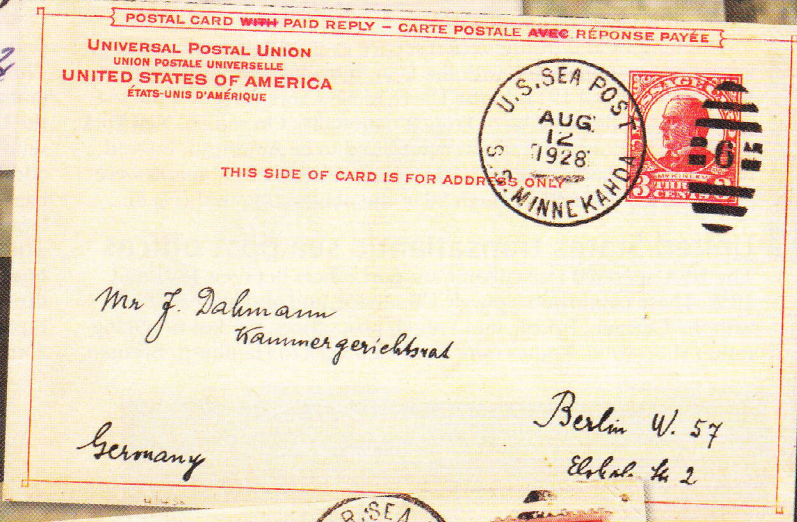 POSTAL CARD WITH PAID REPLY – CARTE POSTALE AVEC RÉPONSE PAYÉE
UNIVERSAL POSTAL UNION
UNION POSTALE UNIVERSELLE
UNITED STATES OF AMERICA
ÉTATS-UNIS D'AMÉRIQUE
U.S. SEA POST
AUG
12
1928
S.S. MINNEKAHDA
6
THIS SIDE OF CARD IS FOR ADDRESS ONLY
McKINLEY
3 THREE 3
CENTS
Mr J. Dahmann
Kammergerichtsrat
Berlin W. 57
2
Germany
SEA